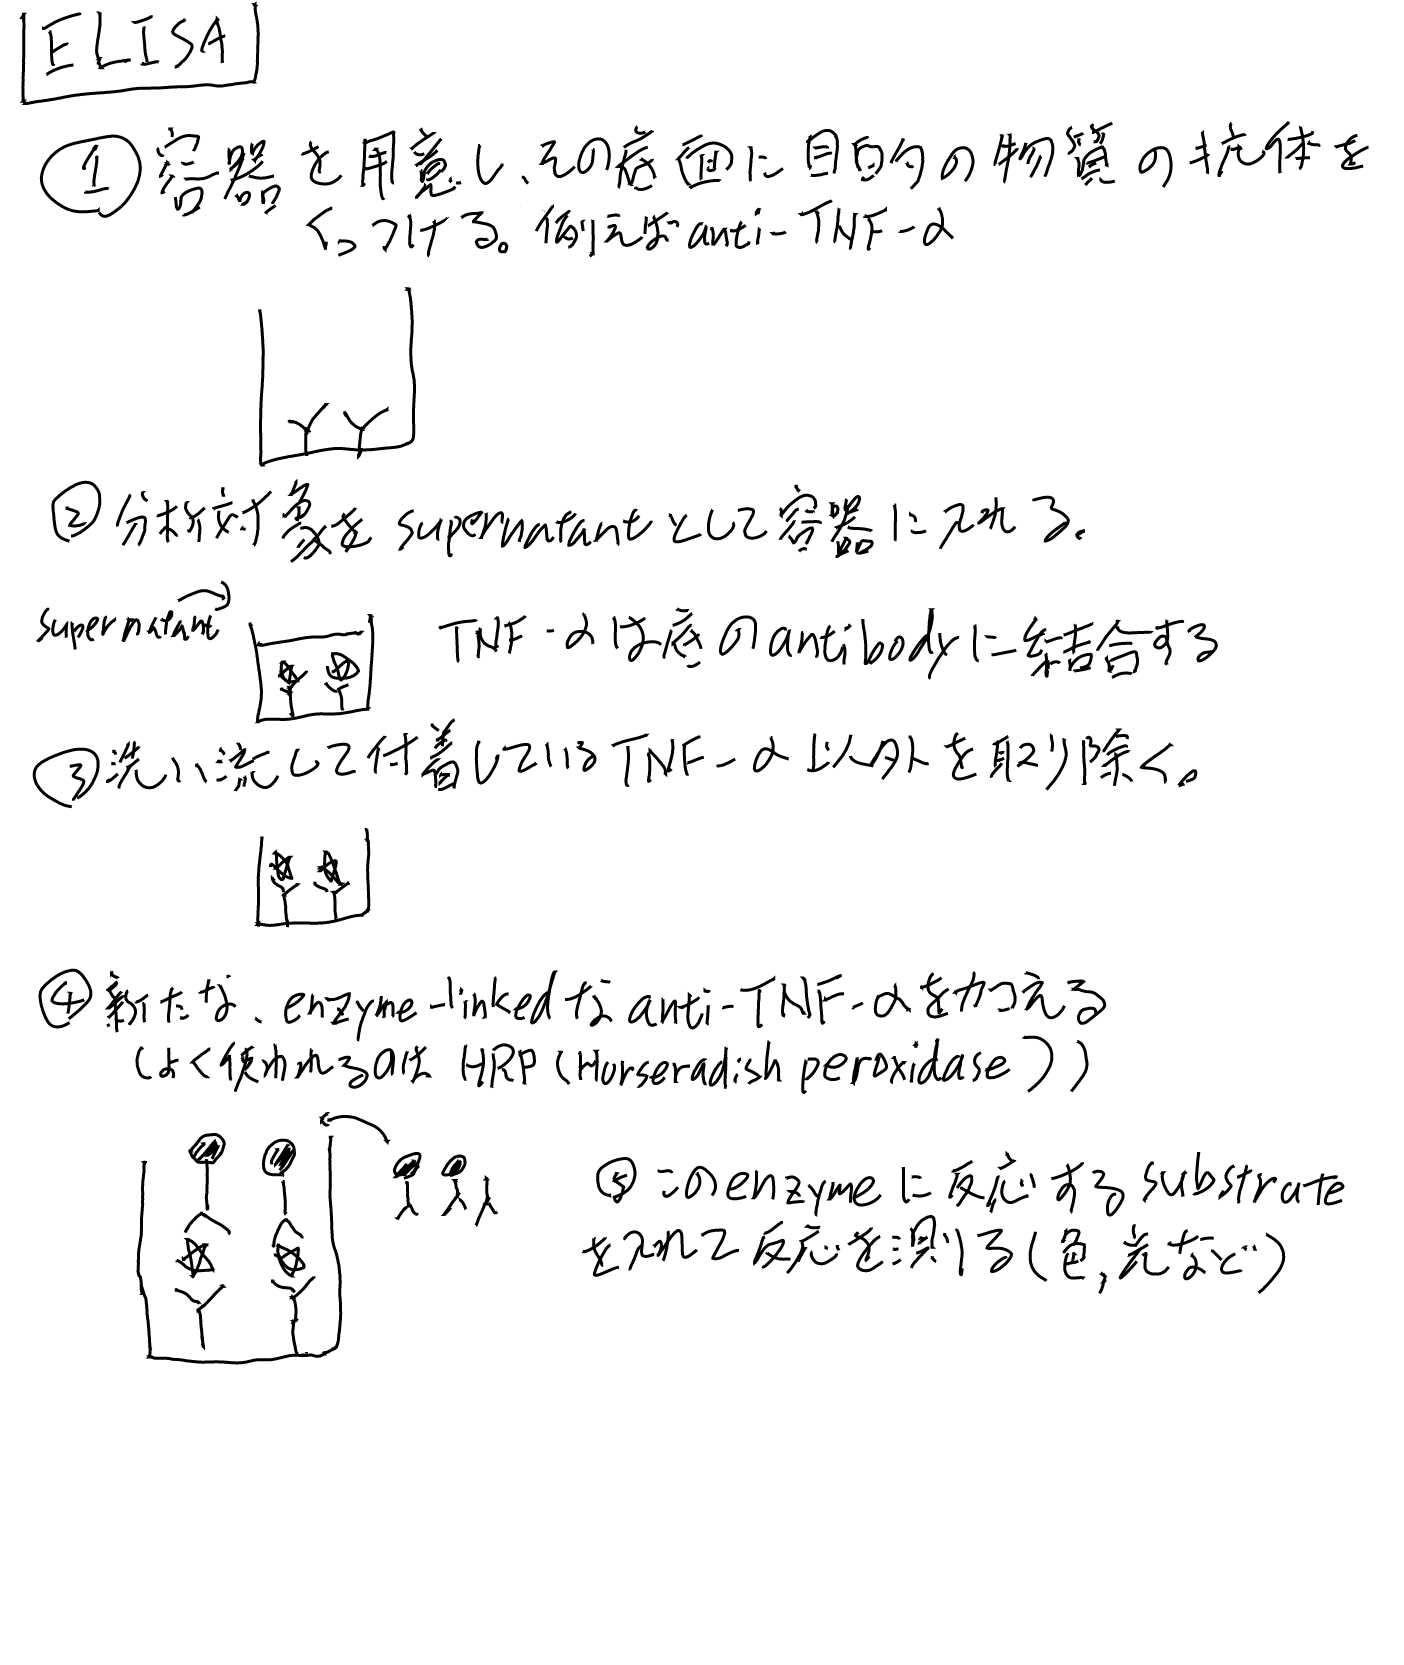 ELISA
① 容器を用意し、その底面に目的の物質の抗体を
くっつける。例えばanti-TNF-α
② 分析対象をsupernatantとして容器に入れる。
supernatant
TNF-αは底のantibodyに結合する
③ 洗い流して付着しているTNF-α以外を取り除く。
④ 新たな、enzyme-linkedなanti-TNF-αを加える
(よく使われるのは HRP (Horseradish peroxidase))
⑤ このenzymeに反応するsubstrate
を入れて反応を測る(色,光など)